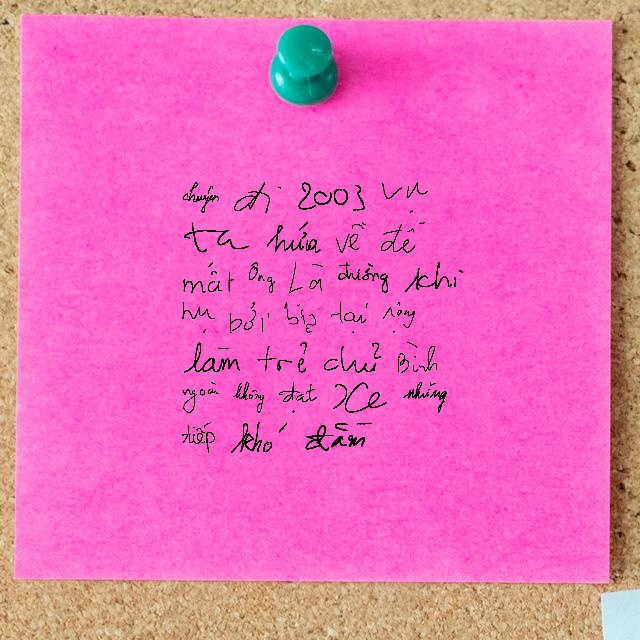 chuyện đi 2003 vụ
ta hứa về để
mát Ông Là đường khi
hụ bởi bịp tại rộng
làm trẻ chủ Bình
ngoài không đạt Xe những
tiếp khó đầm